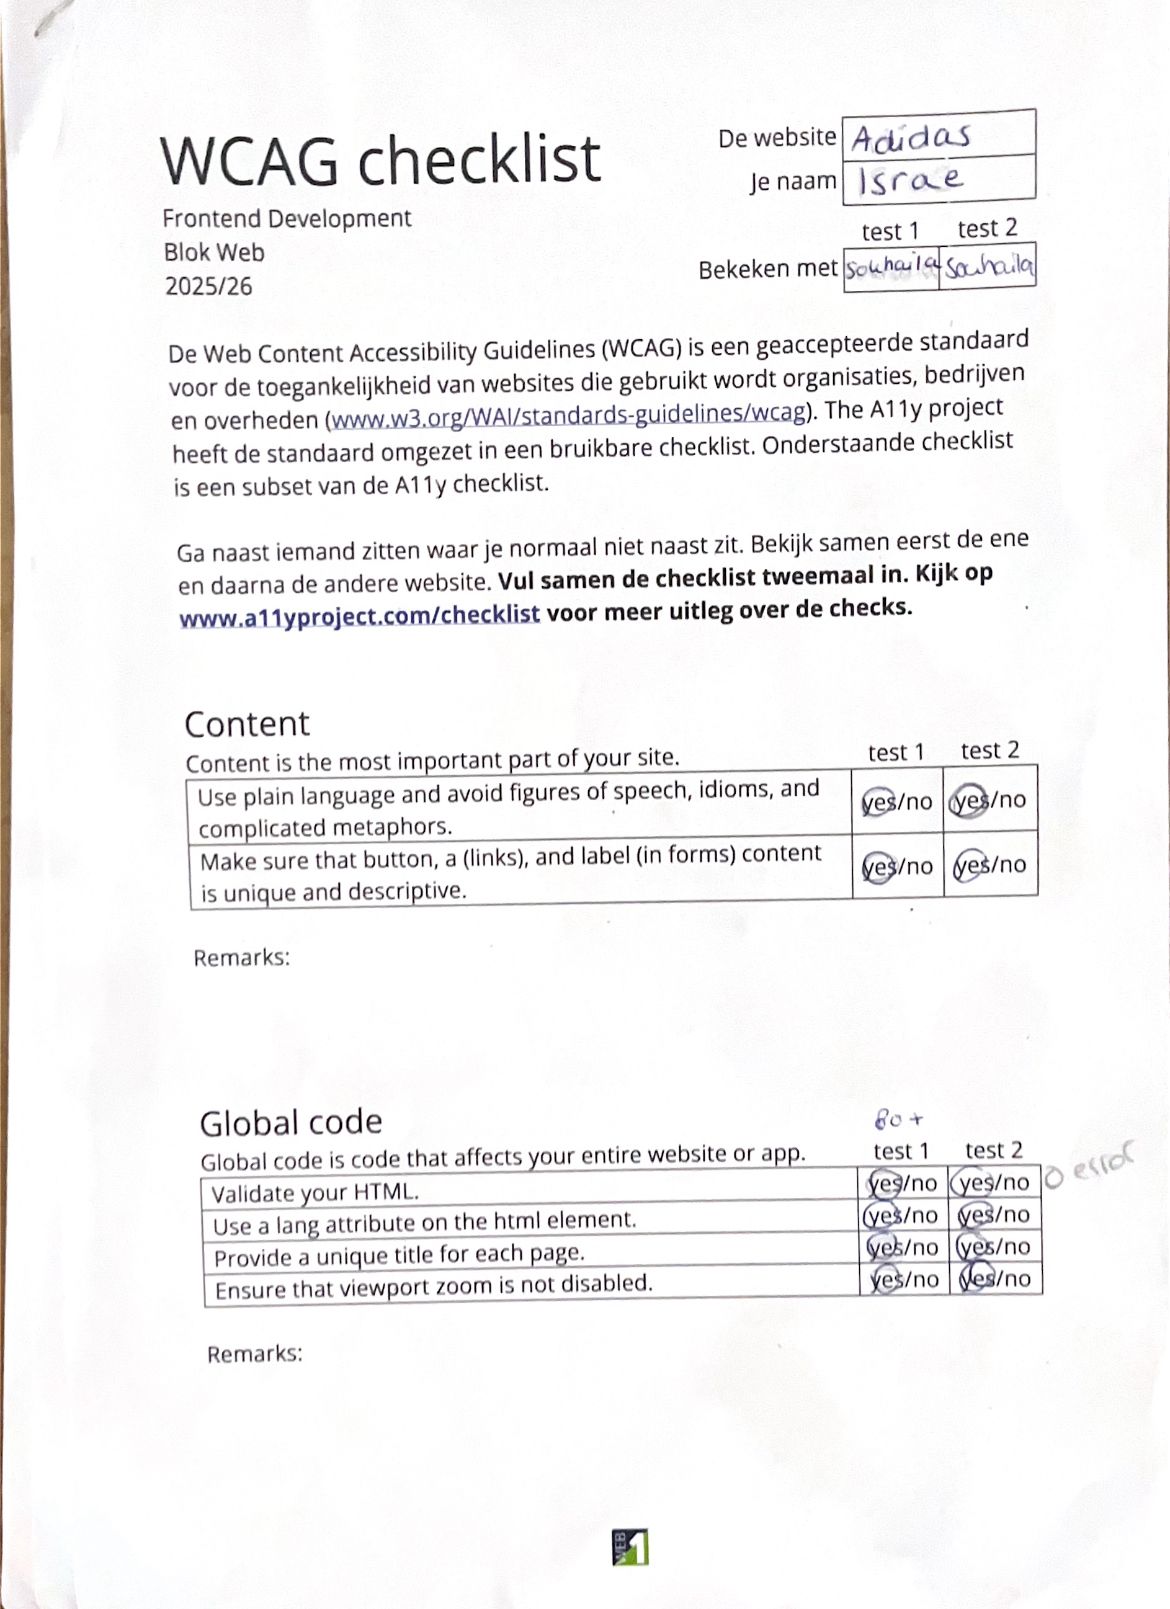 WCAG checklist
Frontend Development
Blok Web
2025/26
De website Adidas
Je naam Israe
test 1 test 2
Bekeken met Souhaila Souhaila
De Web Content Accessibility Guidelines (WCAG) is een geaccepteerde standaard
voor de toegankelijkheid van websites die gebruikt wordt organisaties, bedrijven
en overheden (www.w3.org/WAI/standards-guidelines/wcag). The A11y project
heeft de standaard omgezet in een bruikbare checklist. Onderstaande checklist
is een subset van de A11y checklist.
Ga naast iemand zitten waar je normaal niet naast zit. Bekijk samen eerst de ene
en daarna de andere website. Vul samen de checklist tweemaal in. Kijk op
www.a11yproject.com/checklist voor meer uitleg over de checks.
Content
Content is the most important part of your site. test 1 test 2
Use plain language and avoid figures of speech, idioms, and
complicated metaphors. yes/no yes/no
Make sure that button, a (links), and label (in forms) content
is unique and descriptive. yes/no yes/no
Remarks:
Global code 80+
Global code is code that affects your entire website or app. test 1 test 2
Validate your HTML. yes/no yes/no 0 error
Use a lang attribute on the html element. yes/no yes/no
Provide a unique title for each page. yes/no yes/no
Ensure that viewport zoom is not disabled. yes/no yes/no
Remarks:
WEB 1